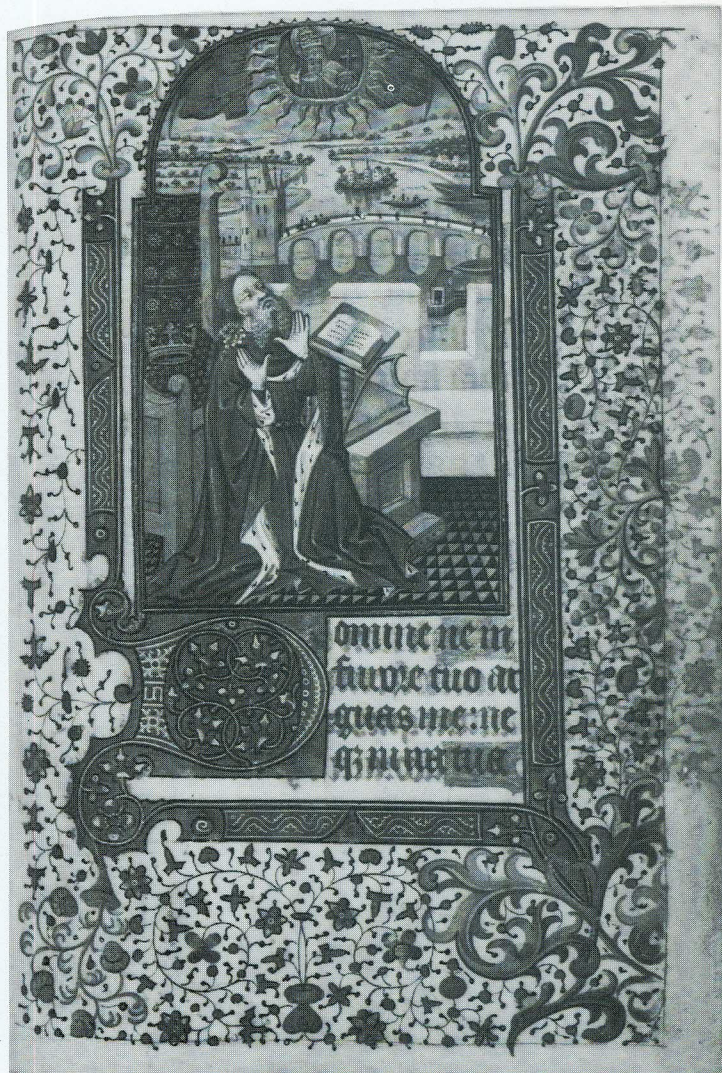 Domine ne in
furore tuo ar
guas me: ne
q; in ira tua